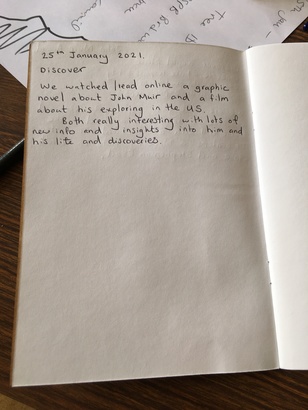 25th January 2021.
Discover
We watched/read online a graphic
novel about John Muir and a film
about his exploring in the US.
Both really interesting with lots of
new info and insights into him and
his life and discoveries.